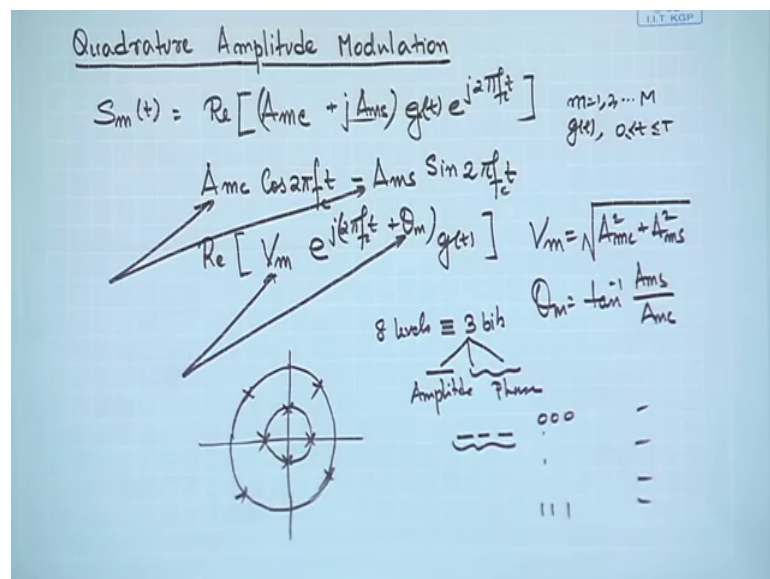 I.I.T. KGP
Quadrature Amplitude Modulation
Sm(t) = Re[(Amc + jAms) g(t) e^{j2πfct}] m=1,2,... M
g(t), 0≤t≤T
Amc Cos2πfct - Ams Sin2πfct
Re[Vm e^{j(2πfct + θm)} g(t)] Vm = √(A²mc + A²ms)
θm = tan⁻¹ Ams/Amc
8 levels ≡ 3 bits
Amplitude Phase
000
111